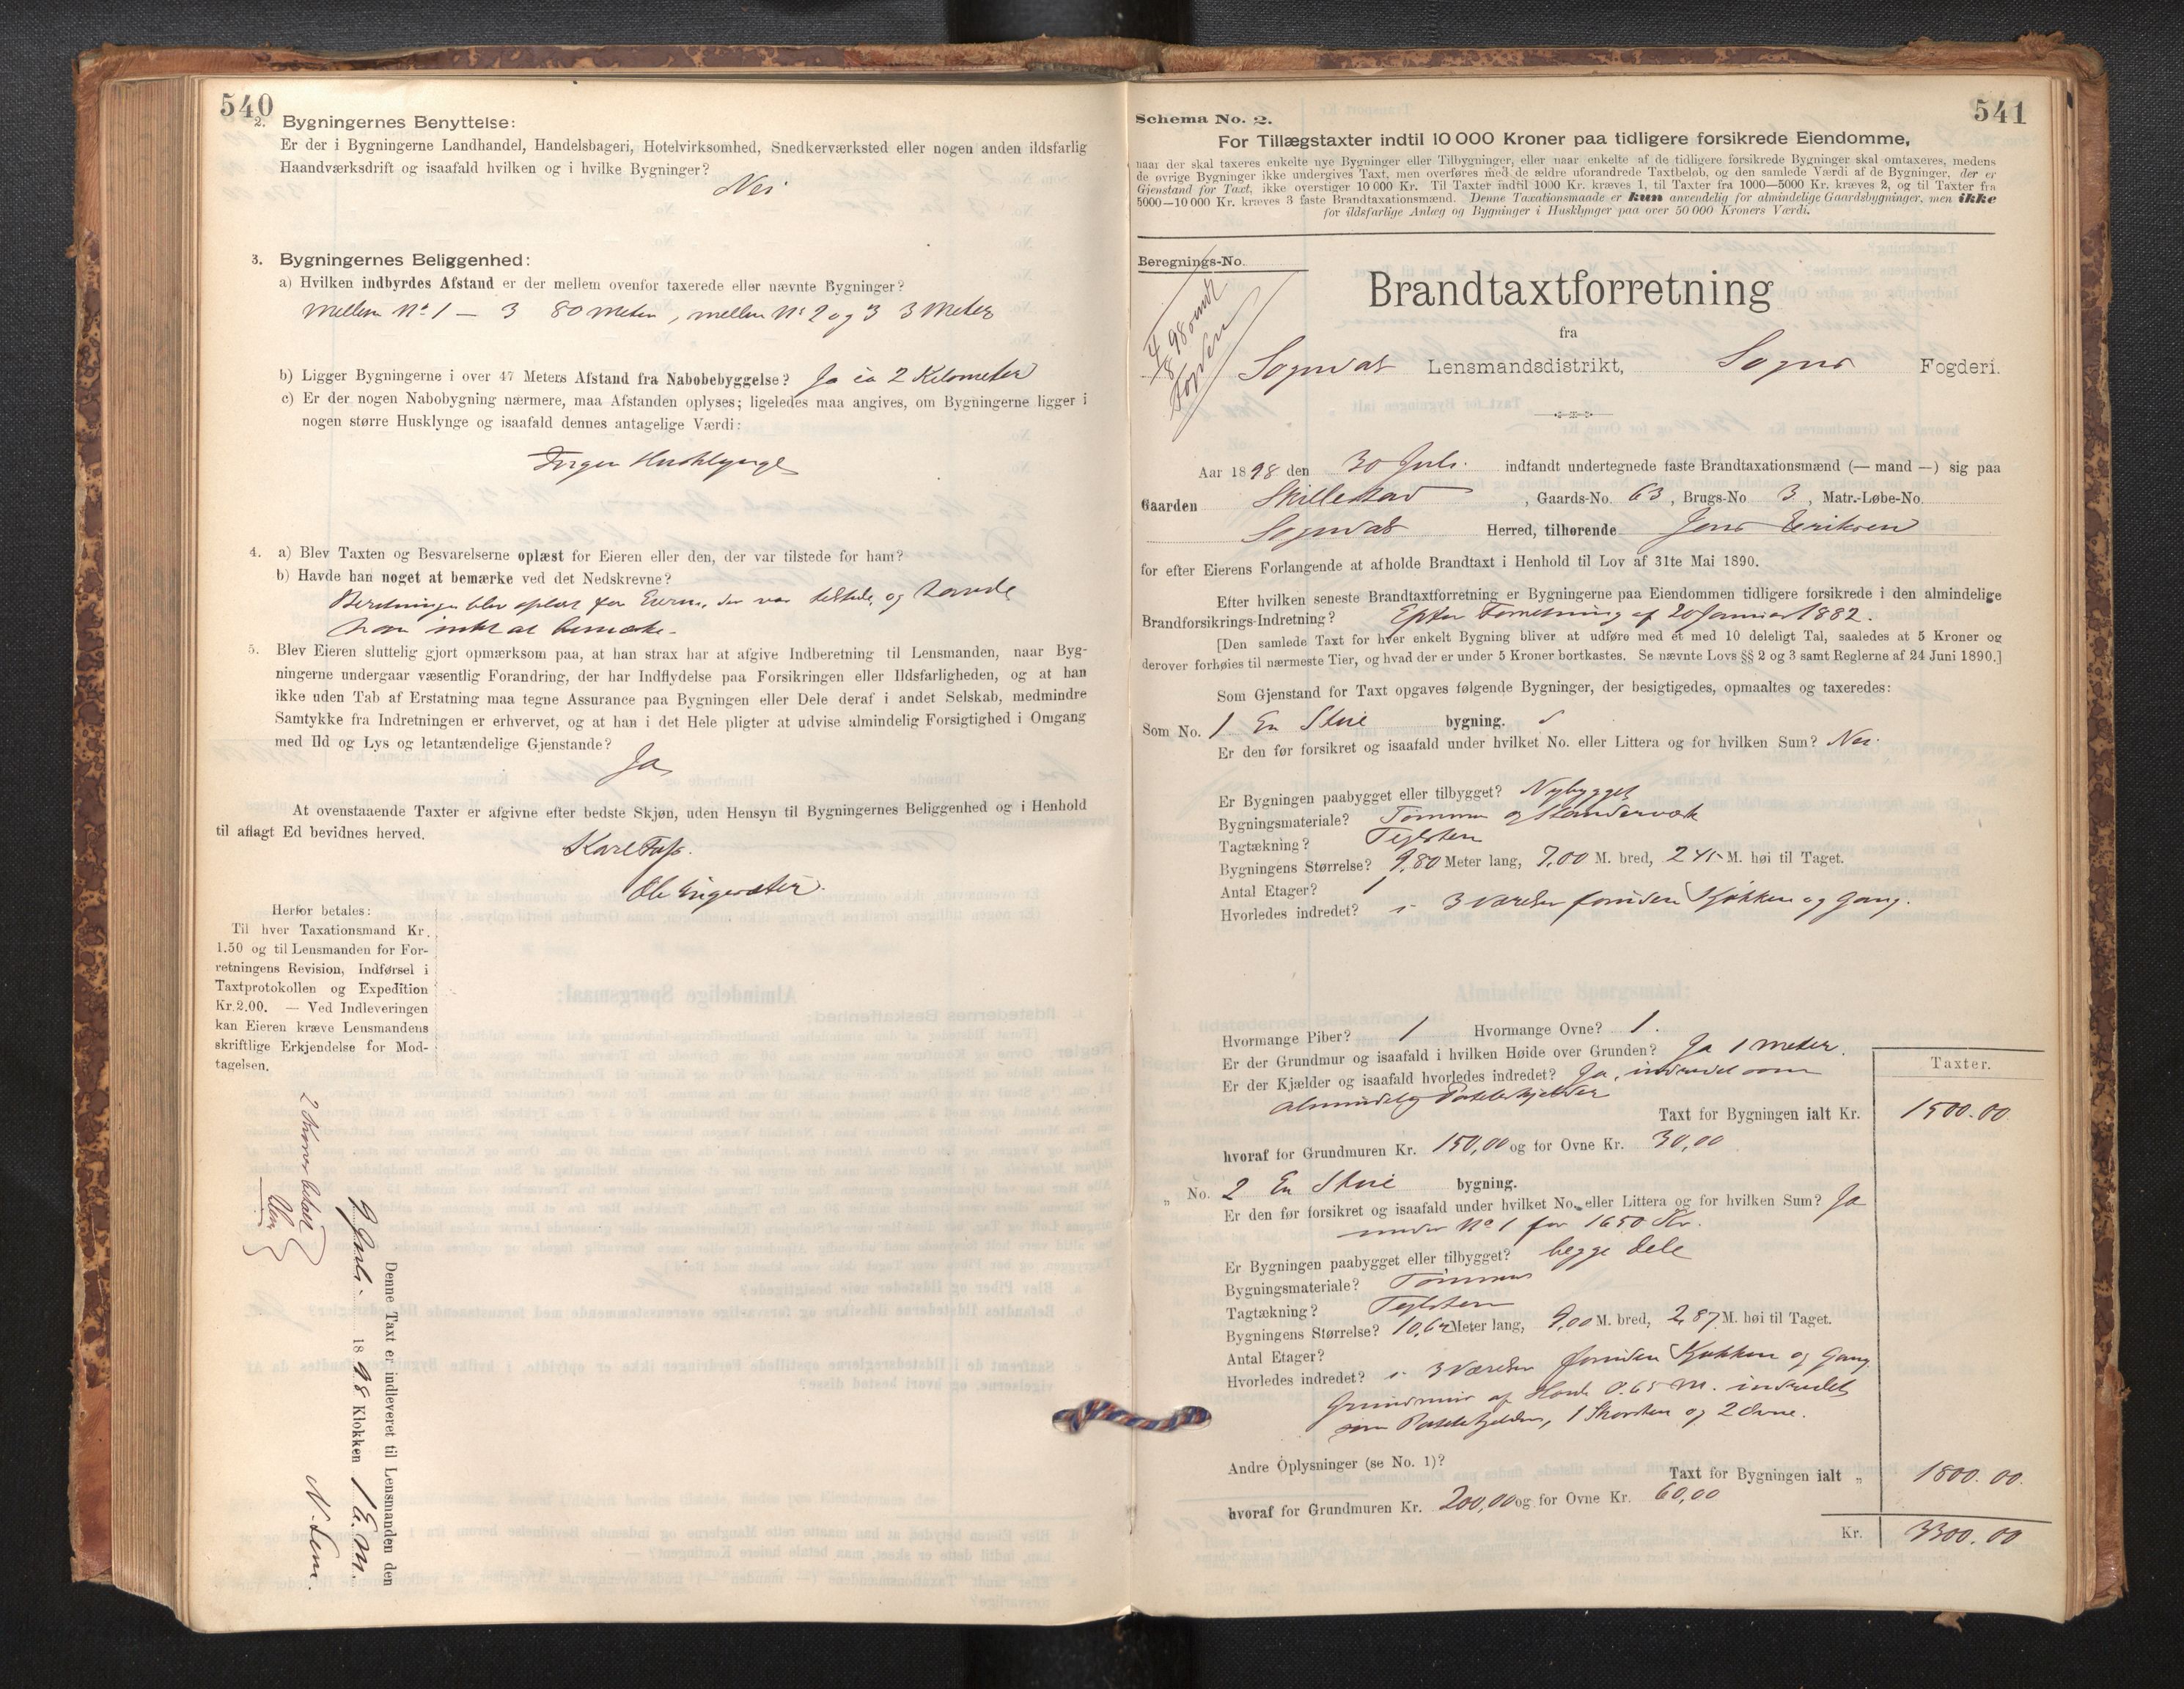 540
2. Bygningernes Benyttelse:
Er der i Bygningerne Landhandel, Handelsbageri, Hotelvirksomhed, Snedkerværksted eller nogen anden ildsfarlig
Haandværksdrift og isaafald hvilken og i hvilke Bygninger?
Nei
3. Bygningernes Beliggenhed:
a) Hvilken indbyrdes Afstand er der mellem ovenfor taxerede eller nævnte Bygninger?
Mellem No 1 — 3 80 Meter, mellem No 2 og 3 3 Meter
b) Ligger Bygningerne i over 47 Meters Afstand fra Nabobebyggelse? Ja ca 2 Kilometer
c) Er der nogen Nabobygning nærmere, maa Afstanden oplyses; ligeledes maa angives, om Bygningerne ligger i
nogen større Husklynge og isaafald dennes antagelige Værdi:
Ingen Husklynge
4. a) Blev Taxten og Besvarelserne oplæst for Eieren eller den, der var tilstede for ham?
b) Havde han noget at bemærke ved det Nedskrevne?
Beretningen blev oplæst for Eieren, der var tilstede, og havde
han intet at bemærke.
5. Blev Eieren sluttelig gjort opmærksom paa, at han strax har at afgive Indberetning til Lensmanden, naar Byg-
ningerne undergaar væsentlig Forandring, der har Indflydelse paa Forsikringen eller Ildsfarligheden, og at han
ikke uden Tab af Erstatning maa tegne Assurance paa Bygningen eller Dele deraf i andet Selskab, medmindre
Samtykke fra Indretningen er erhvervet, og at han i det Hele pligter at udvise almindelig Forsigtighed i Omgang
med Ild og Lys og letantændelige Gjenstande?
Ja
At ovenstaaende Taxter er afgivne efter bedste Skjøn, uden Hensyn til Bygningernes Beliggenhed og i Henhold
til aflagt Ed bevidnes herved.
Karl
Ole
Herfor betales:
Til hver Taxationsmand Kr.
1.50 og til Lensmanden for For-
retningens Revision, Indførsel i
Taxtprotokollen og Expedition
Kr. 2.00. — Ved Indleveringen
kan Eieren kræve Lensmandens
skriftlige Erkjendelse for Mod-
tagelsen.
2 Kroner betalt
Denne Taxt er indleveret til Lensmanden den
9 Juli 1898 Klokken 1 E.M.
N. Lem.
541
Schema No. 2.
For Tillægstaxter indtil 10 000 Kroner paa tidligere forsikrede Eiendomme,
naar der skal taxeres enkelte nye Bygninger eller Tilbygninger, eller naar enkelte af de tidligere forsikrede Bygninger skal omtaxeres, medens
de øvrige Bygninger ikke undergives Taxt, men overføres med de ældre uforandrede Taxtbeløb, og den samlede Værdi af de Bygninger, der er
Gjenstand for Taxt, ikke overstiger 10 000 Kr. Til Taxter indtil 1000 Kr. kræves 1, til Taxter fra 1000—5000 Kr. kræves 2, og til Taxter fra
5000—10 000 Kr. kræves 3 faste Brandtaxationsmænd. Denne Taxationsmaade er kun anvendelig for almindelige Gaardsbygninger, men ikke
for ildsfarlige Anlæg og Bygninger i Husklynger paa over 50 000 Kroners Værdi.
Beregnings-No.
Brandtaxtforretning
fra
Sogndal Lensmandsdistrikt, Sogns Fogderi.
Aar 1898 den 30 Juli indfandt undertegnede faste Brandtaxationsmænd (— mand —) sig paa
Gaarden Skillestad, Gaards-No. 63, Brugs-No 3, Matr.-Løbe-No.
Sogndal Herred, tilhørende Jens Eriksen
for efter Eierens Forlangende at afholde Brandtaxt i Henhold til Lov af 31te Mai 1890.
Efter hvilken seneste Brandtaxtforretning er Bygningerne paa Eiendommen tidligere forsikrede i den almindelige
Brandforsikrings-Indretning? Efter Forretning af 20 Januar 1882.
[Den samlede Taxt for hver enkelt Bygning bliver at udføre med et med 10 deleligt Tal, saaledes at 5 Kroner og
derover forhøies til nærmeste Tier, og hvad der er under 5 Kroner bortkastes. Se nævnte Lovs §§ 2 og 3 samt Reglerne af 24 Juni 1890.]
Som Gjenstand for Taxt opgaves følgende Bygninger, der besigtigedes, opmaaltes og taxeredes:
Som No. 1 En Stue bygning.
Er den før forsikret og isaafald under hvilket No. eller Littera og for hvilken Sum? Nei.
Er Bygningen paabygget eller tilbygget? Nybygget
Bygningsmateriale? Tømmer og Standerværk
Tagtækning? Teglsten
Bygningens Størrelse? 9,80 Meter lang, 7,00 M. bred, 2 45 M. høi til Taget.
Antal Etager? 1
Hvorledes indredet? i 3 værelser foruden Kjøkken og Gang.
Hvormange Piber? 1 Hvormange Ovne? 1.
Er der Grundmur og isaafald i hvilken Høide over Grunden? Ja 1 meter.
Er der Kjælder og isaafald hvorledes indredet? Ja, indredet som
almindelig Potetkjelder
Taxter.
Taxt for Bygningen ialt Kr. 1500.00
hvoraf for Grundmuren Kr. 150,00 og for Ovne Kr. 30,00
„ No. 2 En Stue bygning.
Er den før forsikret og isaafald under hvilket No. eller Littera og for hvilken Sum? Ja
under No 1 for 1650 Kr.
Er Bygningen paabygget eller tilbygget? begge dele
Bygningsmateriale? Tømmer
Tagtækning? Teglsten
Bygningens Størrelse? 10,62 Meter lang, 9,00 M. bred, 2,87 M. høi til Taget.
Antal Etager?
Hvorledes indredet? i 3 værelser foruden Kjøkken og Gang.
Grundmur af Høide 0.65 M. indredet
som Potetkjelder, 1 Skorsten og 2 Ovne.
Andre Oplysninger (se No. 1)?
Taxt for Bygningen ialt „ 1800.00.
hvoraf for Grundmuren Kr. 200,00 og for Ovne Kr. 60,00
Kr. 3300.00